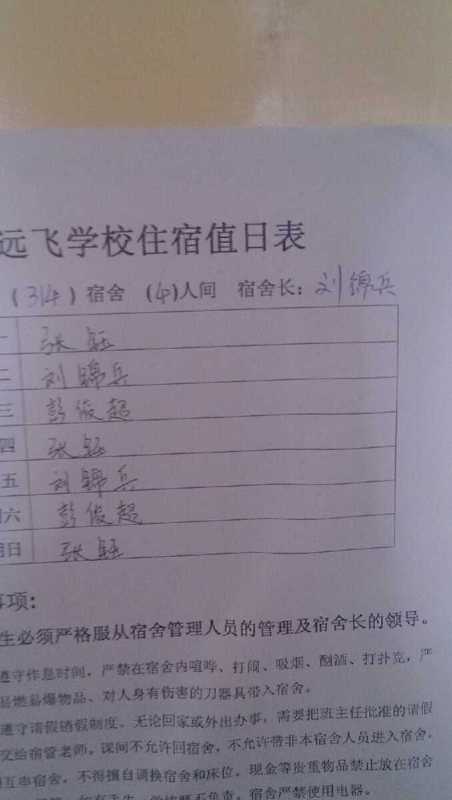 远飞学校住宿值日表
(314)宿舍 (4)人间 宿舍长:刘锦兵
一 张钰
二 刘锦兵
三 彭俊超
四 张钰
五 刘锦兵
六 彭俊超
日 张钰
事项:
生必须严格服从宿舍管理人员的管理及宿舍长的领导。
遵守作息时间,严禁在宿舍内喧哗、打闹、吸烟、酗酒、打扑克,严
易燃易爆物品、对人身有伤害的刀器具带入宿舍。
遵守请假销假制度。无论回家或外出办事,需要把班主任批准的请假
交给宿管老师。课间不允许回宿舍,不允许带非本宿舍人员进入宿舍。
相互串宿舍,不得擅自调换宿舍和床位。现金等贵重物品禁止放在宿舍
宿舍严禁使用电器。